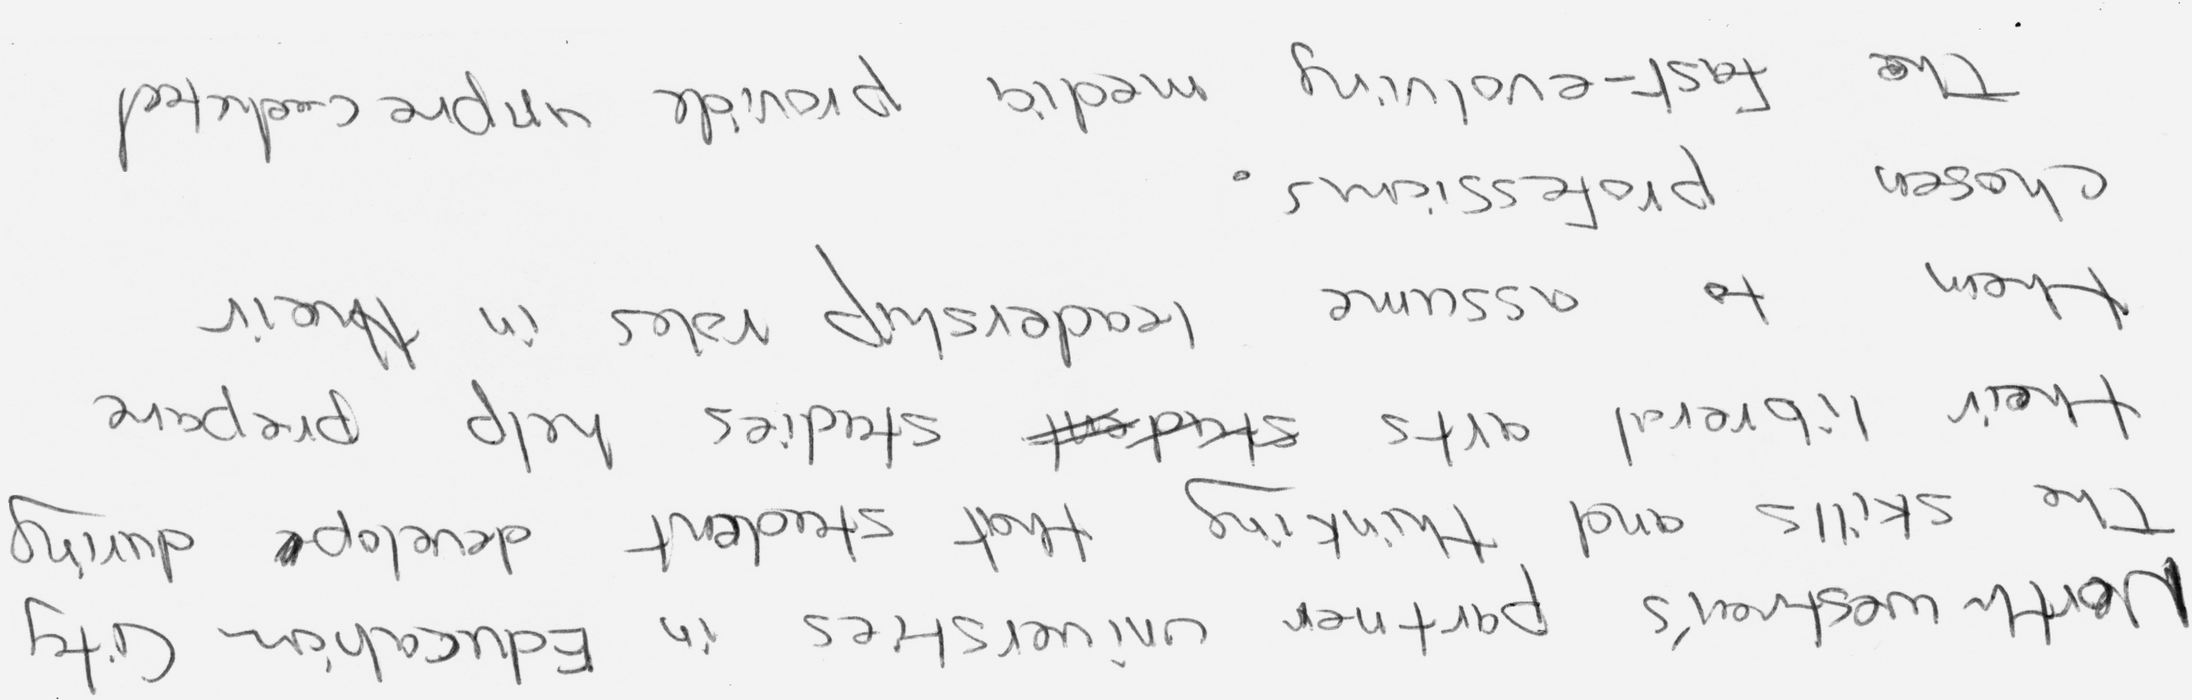 North westren's partner universites in Education City
The skills and thinking that student develope during
their libreral arts studies help prepare
them to assume leadership roles in their
chosen professions.
The fast-evolving media provide unprecedented